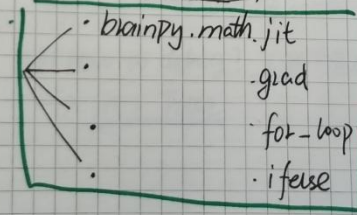 · brainpy.math.jit
· .grad
· .for_loop
· .ifelse